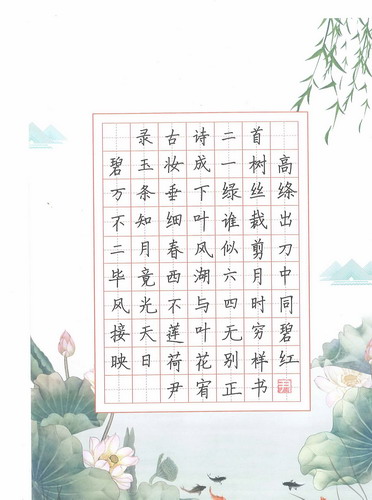 录古诗二首
碧玉妆成一树高
万条垂下绿丝绦
不知细叶谁裁出
二月春风似剪刀
毕竟西湖六月中
风光不与四时同
接天莲叶无穷碧
映日荷花别样红
尹宥正书